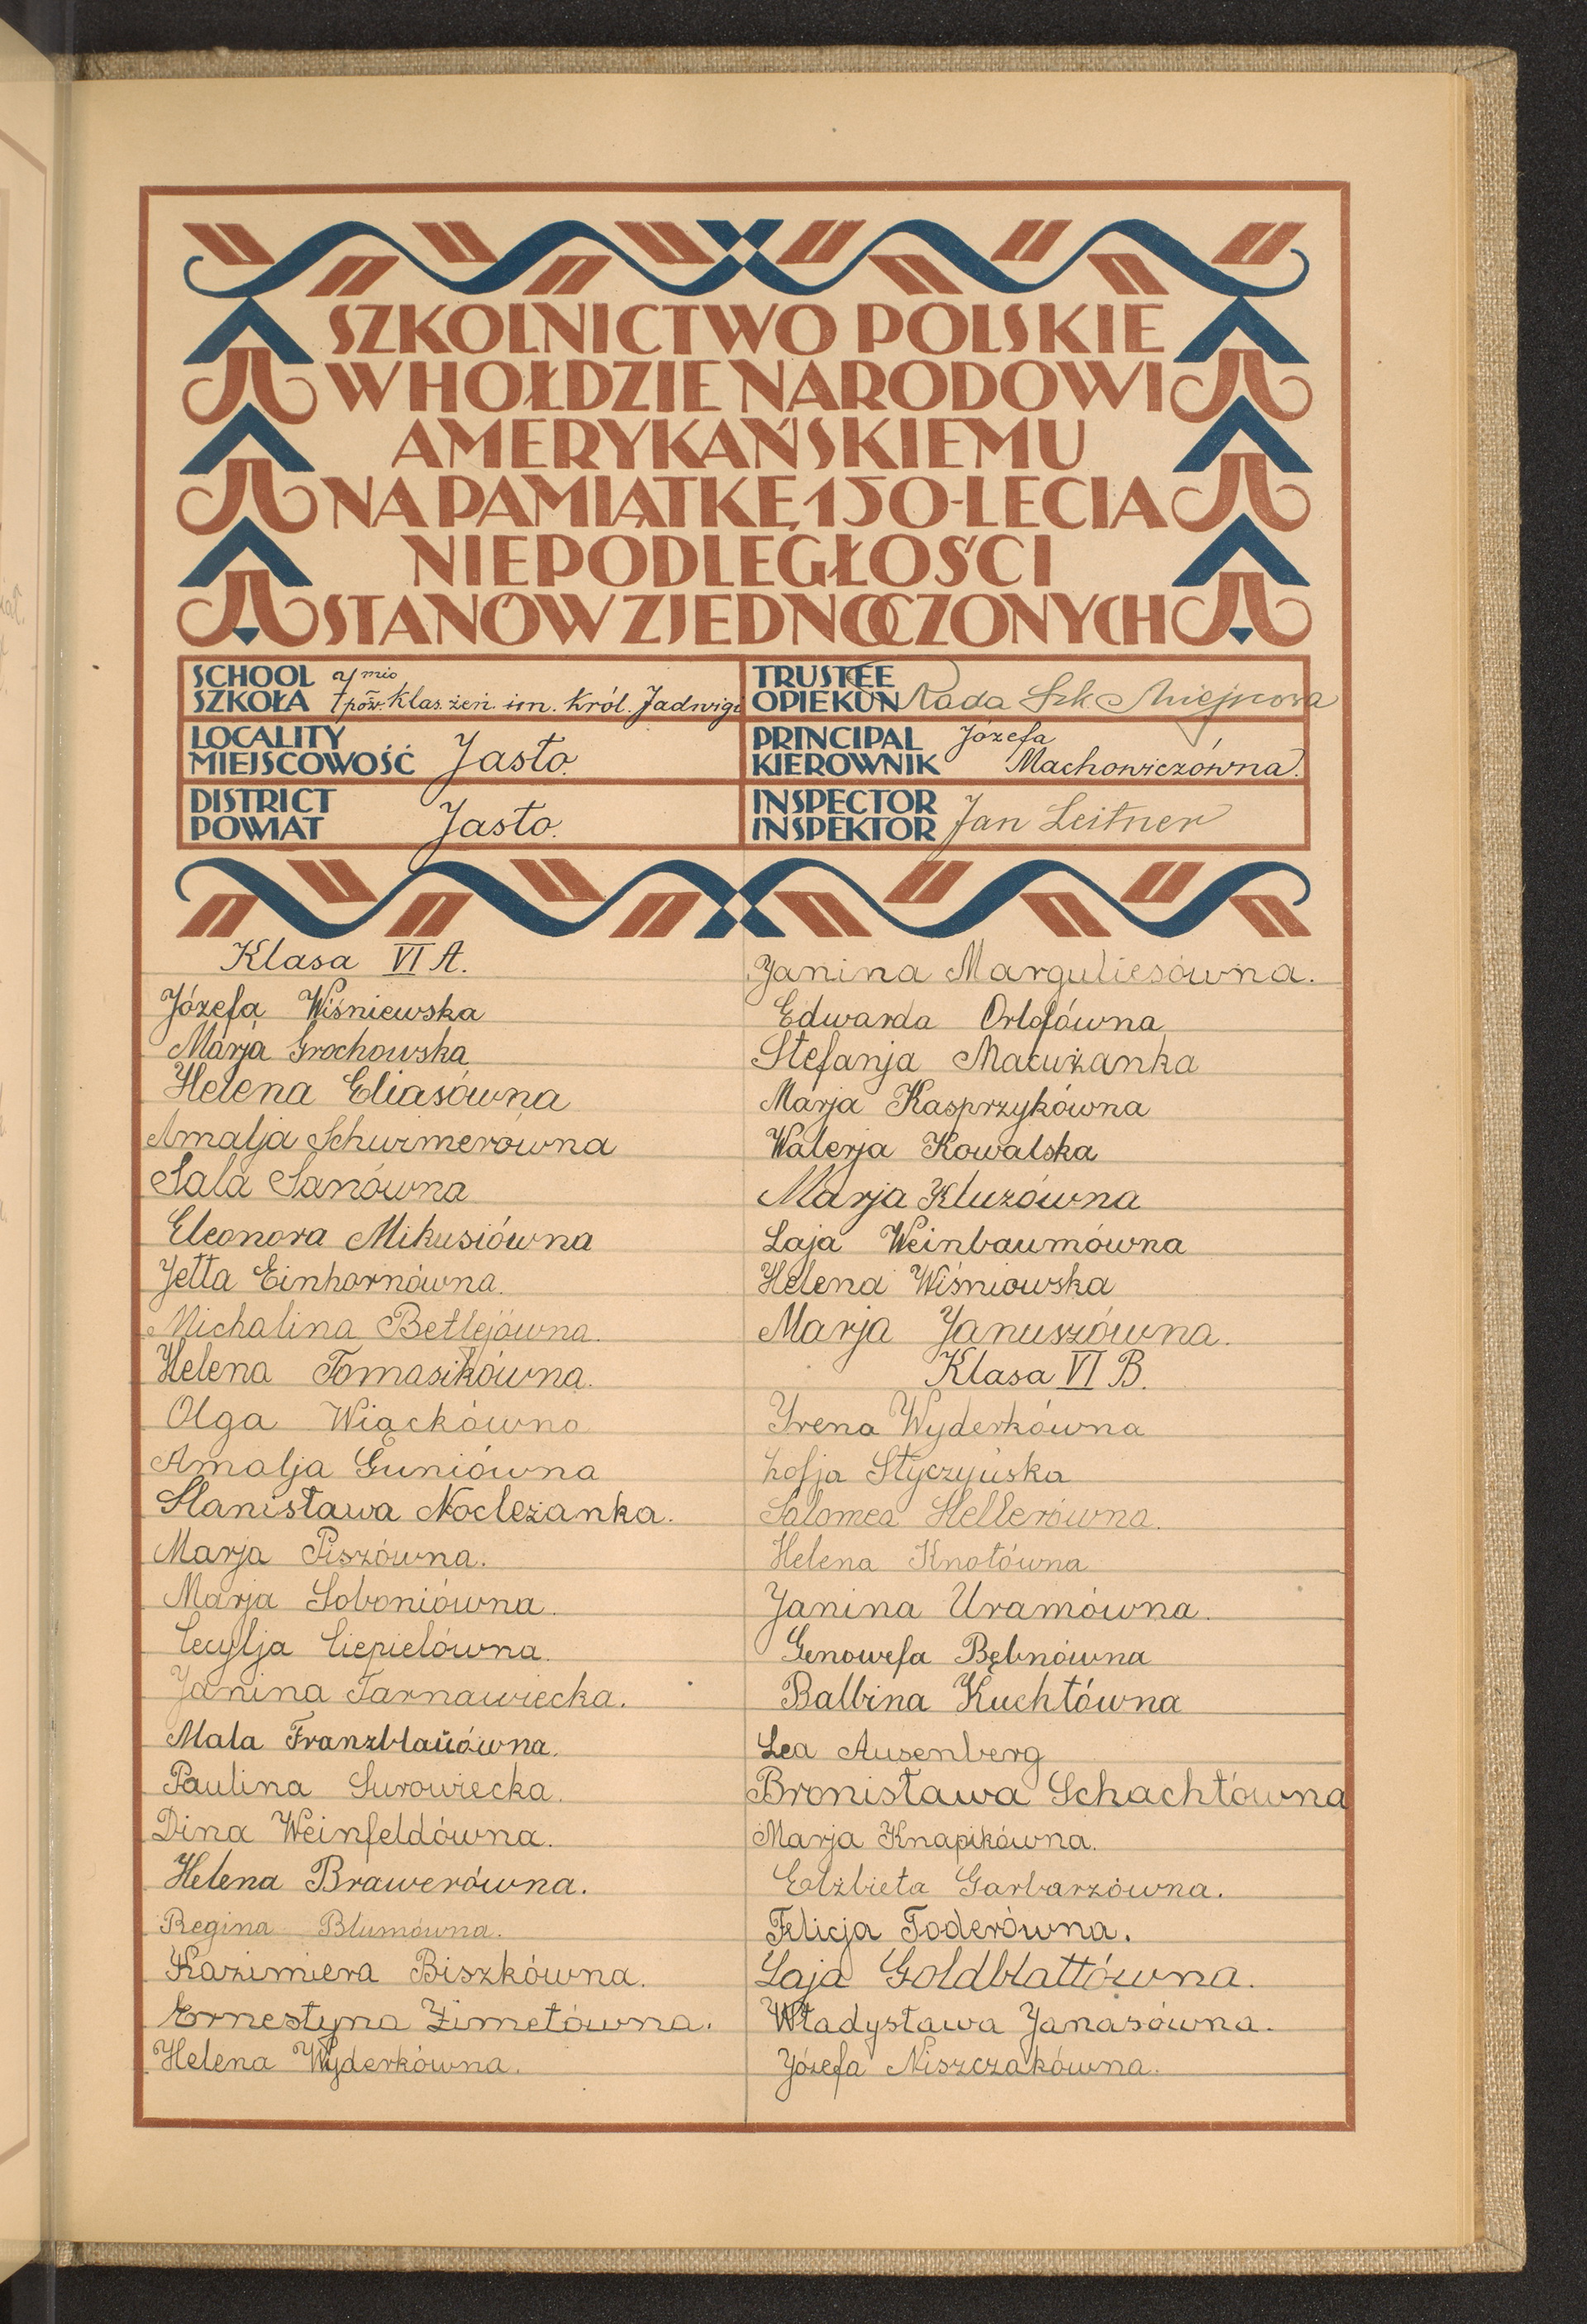 SZKOLNICTWO POLSKIE
W HOŁDZIE NARODOWI
AMERYKAŃSKIEMU
NA PAMIĄTKĘ 150-LECIA
NIEPODLEGŁOŚCI
STANÓW ZJEDNOCZONYCH
SCHOOL
SZKOŁA 7mio pow. klas. żeń. im. Król. Jadwigi
TRUSTEE
OPIEKUN Rada Szk Miejscowa
LOCALITY
MIEJSCOWOŚĆ Jasło.
PRINCIPAL Józefa
KIEROWNIK Machowiczówna.
DISTRICT
POWIAT Jasło.
INSPECTOR
INSPEKTOR Jan Leitner
Klasa VI A.
Józefa Wiśniewska
Marja Grochowska
Helena Eliasówna
Amalja Schurmerówna
Sala Sanówna
Eleonora Mikusiówna
Jetta Einhornówna.
Michalina Betlejówna.
Helena Tomasikówna.
Olga Wiąckówna
Amalja Guniówna
Stanisława Nocleżanka.
Marja Piszówna.
Marja Soboniówna.
Cecylja Ciepielówna.
Janina Tarnawiecka.
Mala Franzblauówna.
Paulina Surowiecka.
Dina Weinfeldówna.
Helena Brawerówna.
Regina Blumówna.
Kazimiera Biszkówna.
Ernestyna Zimetówna.
Helena Wyderkówna.
Janina Marguliesówna.
Edwarda Orlofówna
Stefanja Macużanka
Marja Kasprzykówna
Walerja Kowalska
Marja Kluzówna
Laja Weinbaumówna
Helena Wiśniowska
Marja Januszówna.
Klasa VI B.
Irena Wyderkówna
Zofja Styczyńska
Salomea Hellerówna.
Helena Knotówna
Janina Uramówna.
Genowefa Bębnówna
Balbina Kuchtówna
Lea Ausenberg
Bronisława Schachtówna
Marja Knapikówna.
Elżbieta Garbarzówna.
Felicja Toderówna.
Laja Goldblattówna.
Władysława Janasówna.
Józefa Niszczakówna.